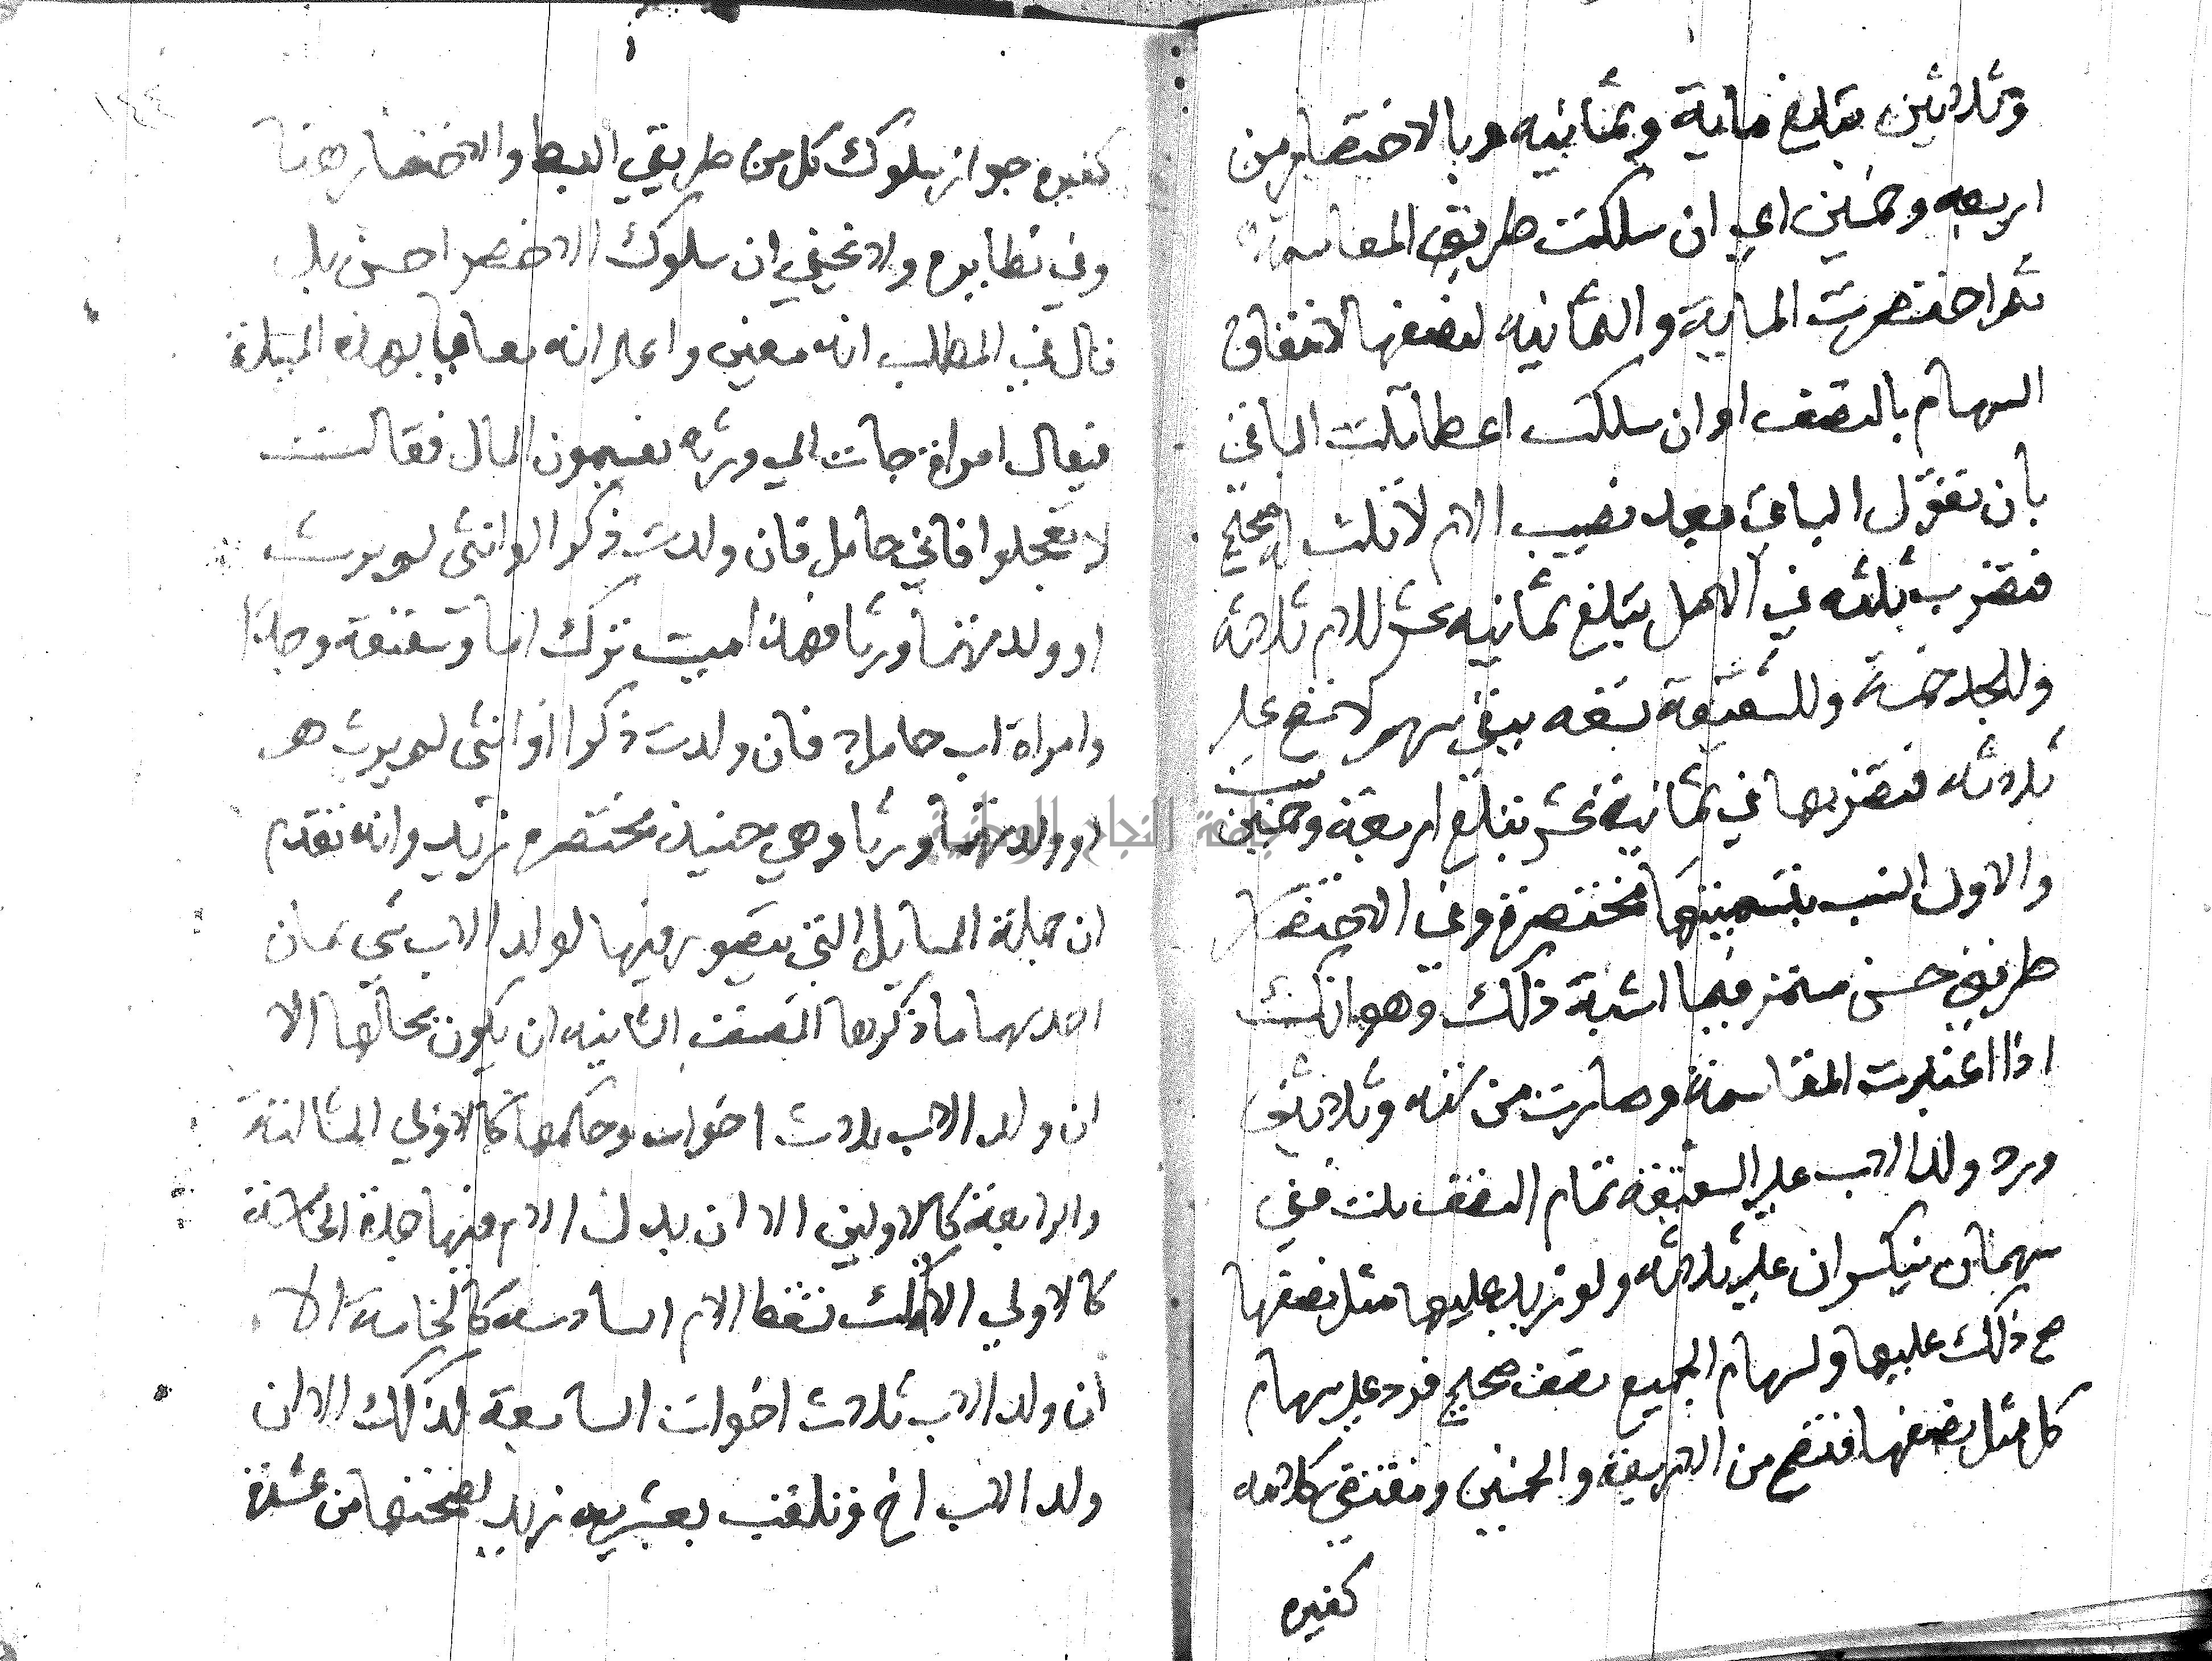 وثلاثين تبلغ ماية وثمانيه وبالاختصار من
اربعه وخمسين اي ان سلكت طريق المقاسمة
ثم اختصرت الماية والثمانيه لنصفها لاتفاق
السهام بالنصف او ان سلكت اعطا ثلث الباقي
بان تقول الباقي بعد نصيب الام لا ثلث له صحيح
فتضرب ثلثه في الاصل تبلغ ثمانيه عشر للام ثلاثه
وللجد خمسة وللشقيقة تسعه يبقي سهم لا تصح علي
ثلاثه فتضربها في ثمانية عشر تبلغ اربعة وخمسين
والاول انسب بتسميتها مختصرة وفي الاختصار
طريق حسن مستمر فيما اشبة ذلك وهو انك
اذا اعتبرت المقاسمة وصارت من سته وثلاثين
ورد ولد الاب علي الشقيقة تمام النصف بقي
سهمان ينكسران علي ثلاثه ولو زيد عليها مثل نصفها
صح ذلك عليها ولسهام الجميع نصف صحيح فزد علي سهام
كل مثل نصفها فتصح من الاربعة والخمسين ومقتضي كلامه
كغيره
١٤٤
كغيره جواز سلوك كل من طريقي البسط والاختصار هنا
وفي نظايره ولا يخفي ان سلوك الاخصر احسن بل
قال في المطلب انه متعين واعلم انه يعايا بهذه المسئلة
فيقال امراة جات الي ورثه يقسمون المال فقالت
لا تعجلوا فاني حامل فان ولدت ذكرا او انثى لم يرث
او ولدتهما ورثا فهذا ميت ترك اما وشقيقة وجدا
وامراة اب حاملا فان ولدت ذكرا او انثى لم يرث هو
او ولدتهما ورثا وهي حينيذ مختصرة زيد وانه تقدم
ان جملة المسايل التي يتصور فيها لولد الاب شي ثمان
احديهما ما ذكرها المصنف الثانيه ان يكون بحالها الا
ان ولد الاب ثلاث اخوات وحكمها كالاولي الثالثة
والرابعة كالاولين الا ان بدل الام فيها جدة الخامسة
كالاولي الا انك تسقط الام السادسه كالخامسة الا
ان ولد الاب ثلاث اخوات السابعة كذلك الا ان
ولد الاب اخ وتلقب بعشرية زيد لصحتها من عشرة
جامعة النجاح الوطنية